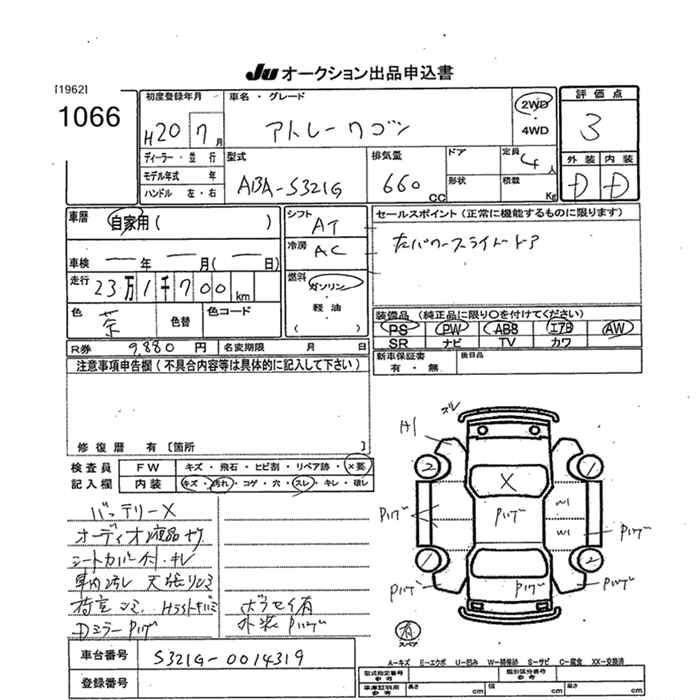 JU オークション出品申込書
[1962]
1066
初度登録年月
H20 7月
ディーラー・並行
モデル年式 年
ハンドル 左・右
車名・グレード
アトレーワゴン
2WD
4WD
型式
ABA-S321G
排気量
660 CC
ドア
形状
定員
4人
積載
Kg
評価点
3
外装 内装
D D
車歴
自家用( )
車検 ー年 ー月(ー日)
走行
23万1千700km
色
茶
色替
色コード
シフト
AT
冷房
AC
燃料
ガソリン
軽油
( )
セールスポイント(正常に機能するものに限ります)
左パワースライドドア
装備品(純正品に限り○を付けてください)
PS PW ABS エアB AW
SR ナビ TV カワ
新車保証書
有・無
後日品
R券 9,880円
名変期限 月 日
注意事項申告欄(不具合内容等は具体的に記入して下さい)
修復歴 有[箇所 ]
検査員 FW キズ・飛石・ヒビ割・リペア跡・×要
記入欄 内装 キズ・汚れ・コゲ・穴・スレ・キレ・破レ
バッテリーX
オーディオ液晶
シートカバー付・キレ
車内汚レ
Dミラー Pハゲ
外装Pハゲ
車台番号 S321G-0014319
登録番号
スレ
A1
2
1
X
Pハゲ
Pハゲ
W1
W1
Pハゲ
1
2
Pハゲ
Pハゲ
Pハゲ
有
スペア
A-キズ E-エクボ U-凹み W-補修跡 S-サビ C-腐食 XX-交換済
型式指定番号
参考
類別区分番号
参考
車庫証明用
参考
長 cm 幅 cm 高 cm